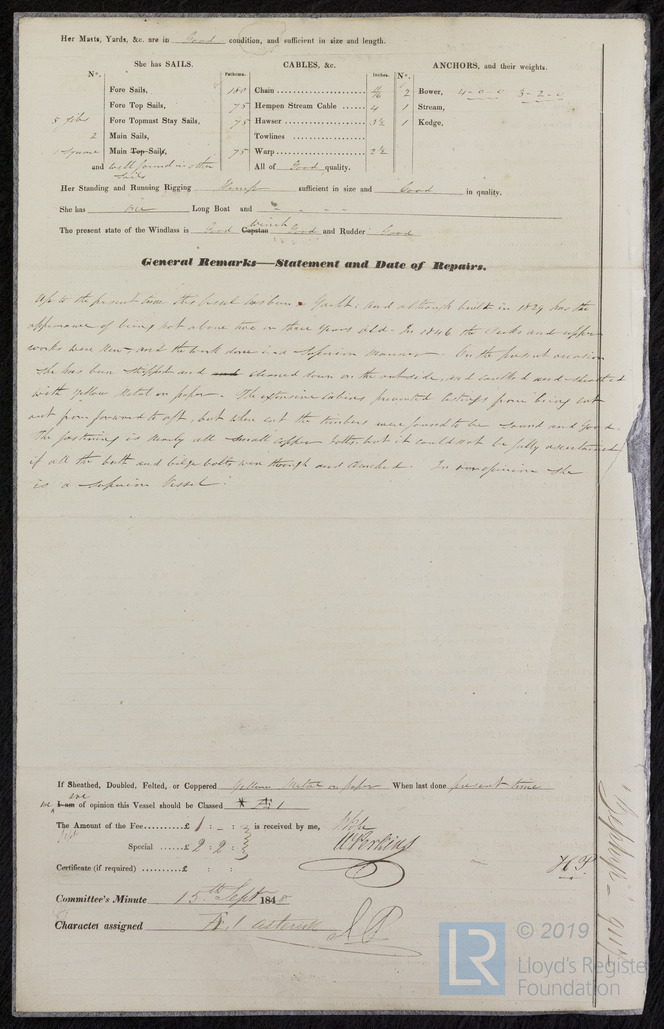 Her Masts, Yards, &c. are in Good condition, and sufficient in size and length.
She has SAILS.
CABLES, &c.
ANCHORS, and their weights.
N°.
Fathoms.
Inches.
N°.
Fore Sails,
180
Chain
11/16
2
Bower,
4-0-0
3-2-0
Fore Top Sails,
75
Hempen Stream Cable
4
1
Stream,
5 Jibs
Fore Topmast Stay Sails,
75
Hawser
3½
1
Kedge,
2
Main Sails,
Towlines
1 Square
Main Top Sails,
75
Warp
2½
and well found in other
Sails
All of Good quality.
Her Standing and Running Rigging Hemp sufficient in size and Good in quality.
She has one Long Boat and
Winch
The present state of the Windlass is Good Capstan Good and Rudder Good
General Remarks—Statement and Date of Repairs.
Up to the present time this Vessel has been a Yacht, and although built in 1829 has the
appearance of being not above two or three years old. In 1846 the Decks and upper
works were New, and the work done in a Superior manner. On the present occasion
She has been stripped and cleaned down on the outside, and caulked and sheathed
with Yellow Metal on paper. The extensive Cabins prevented listings from being cut
out from forward to aft, but when cut the timbers were found to be Sound and good.
The fastening is nearly all Small Copper bolts, but it could not be fully ascertained
if all the butt and bilge bolts were through and clenched. In our opinion She
is a Superior Vessel.
If Sheathed, Doubled, Felted, or Coppered Yellow Metal on paper When last done present time
are
We I am of opinion this Vessel should be Classed Æ 1
The Amount of the Fee £ 1 : - : is received by me,
Special £ 2 : 2 :
W Perkins
Certificate (if required) £ : :
H. P.
Committee's Minute 15th Sept 1848
Character assigned Æ 1 asterisk
Zephyr
LR
© 2019
Lloyd's Register
Foundation